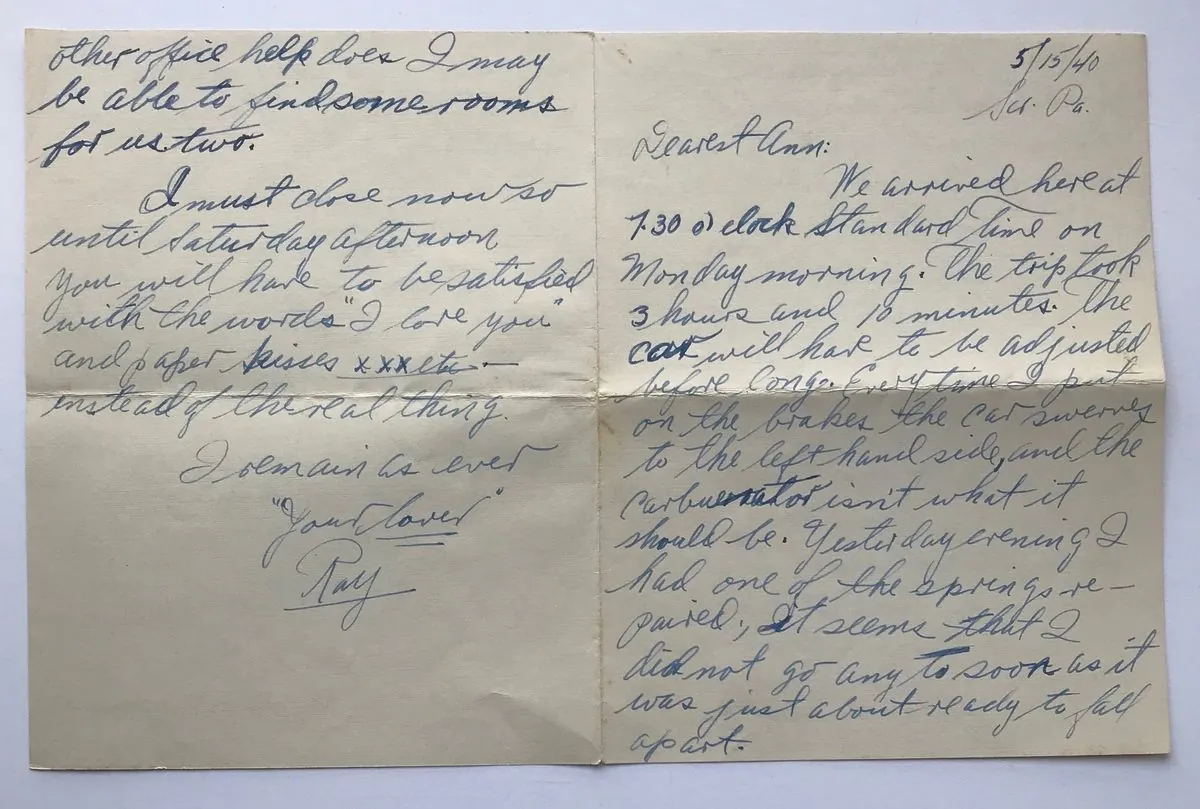 5/15/40
Scr. Pa.
Dearest Ann:
We arrived here at
7.30 o'clock Standard Time on
Monday morning. The trip took
3 hours and 10 minutes. The
car will have to be adjusted
before long. Every time I put
on the brakes the car swerves
to the left hand side, and the
carbuerator isn't what it
should be. Yesterday evening I
had one of the springs re-
paired., It seems that I
did not go any to soon as it
was just about ready to fall
apart.
other office help does I may
be able to find some rooms
for us two.
I must close now so
until Saturday afternoon
you will have to be satisfied
with the words "I love you"
and paper kisses xxx etc. —
instead of the real thing.
I remain as ever
"Your lover"
Ray